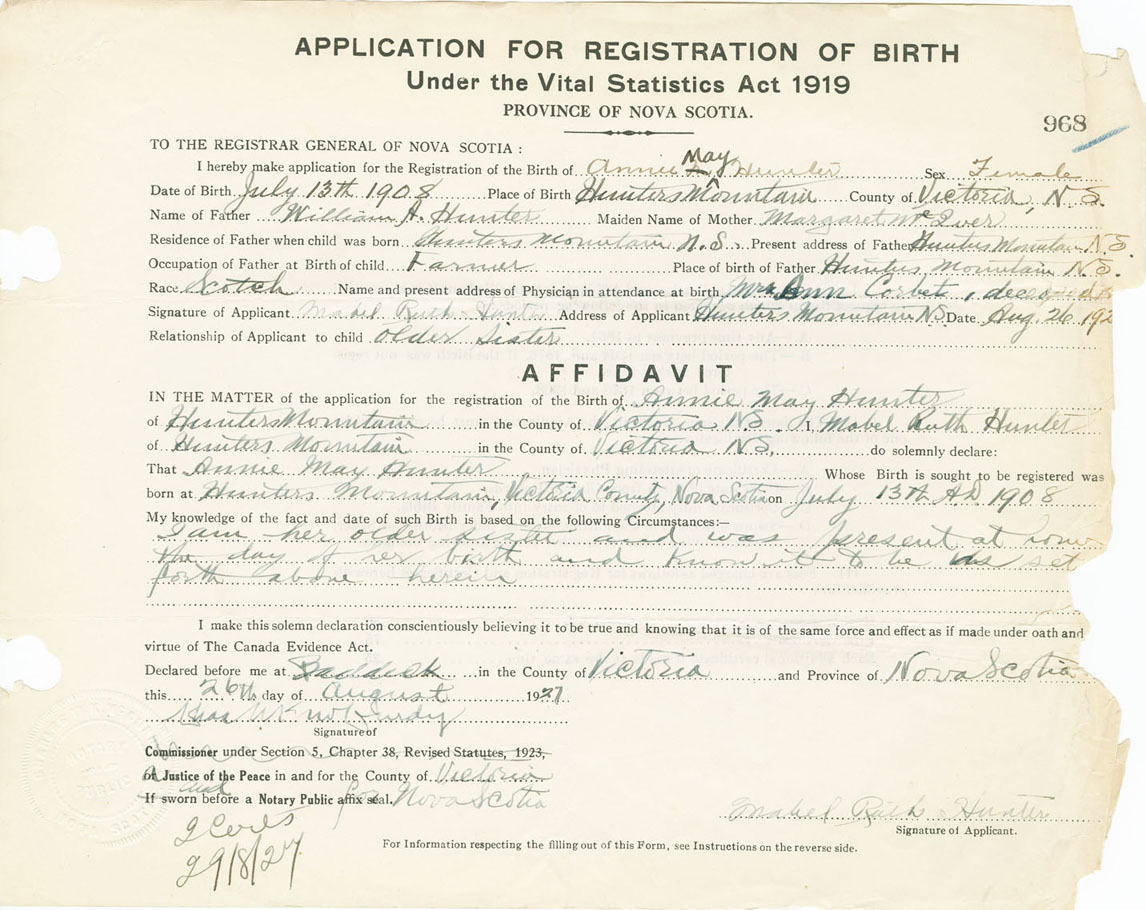 APPLICATION FOR REGISTRATION OF BIRTH
Under the Vital Statistics Act 1919
PROVINCE OF NOVA SCOTIA.
968
TO THE REGISTRAR GENERAL OF NOVA SCOTIA :
I hereby make application for the Registration of the Birth of Annie May Hunter Sex Female
Date of Birth July 13th 1908 Place of Birth Hunters Mountain County of Victoria, N.S.
Name of Father William A. Hunter Maiden Name of Mother Margaret McIver
Residence of Father when child was born Hunters Mountain N.S. Present address of Father Hunters Mountain N.S.
Occupation of Father at Birth of child Farmer Place of birth of Father Hunters Mountain N.S.
Race Scotch Name and present address of Physician in attendance at birth Mrs Ann Corbet, deceased
Signature of Applicant Mabel Ruth Hunter Address of Applicant Hunters Mountain N.S. Date Aug. 26 192
Relationship of Applicant to child older sister
AFFIDAVIT
IN THE MATTER of the application for the registration of the Birth of Annie May Hunter
of Hunters Mountain in the County of Victoria N.S. I, Mabel Ruth Hunter
of Hunters Mountain in the County of Victoria N.S, do solemnly declare:
That Annie May Hunter Whose Birth is sought to be registered was
born at Hunters Mountain, Victoria County, Nova Scotia on July 13th A.D. 1908
My knowledge of the fact and date of such Birth is based on the following Circumstances:—
I am her older sister and was present at
the day of her birth and know it to be as set
forth above herein
I make this solemn declaration conscientiously believing it to be true and knowing that it is of the same force and effect as if made under oath and
virtue of The Canada Evidence Act.
Declared before me at Baddeck in the County of Victoria and Province of Nova Scotia
this 26th day of August 1927
Signature of
Commissioner under Section 5, Chapter 38, Revised Statutes, 1923,
or Justice of the Peace in and for the County of Victoria
and
If sworn before a Notary Public affix seal. for Nova Scotia
Mabel Ruth Hunter
Signature of Applicant.
2 Certs
29/8/27
For Information respecting the filling out of this Form, see Instructions on the reverse side.